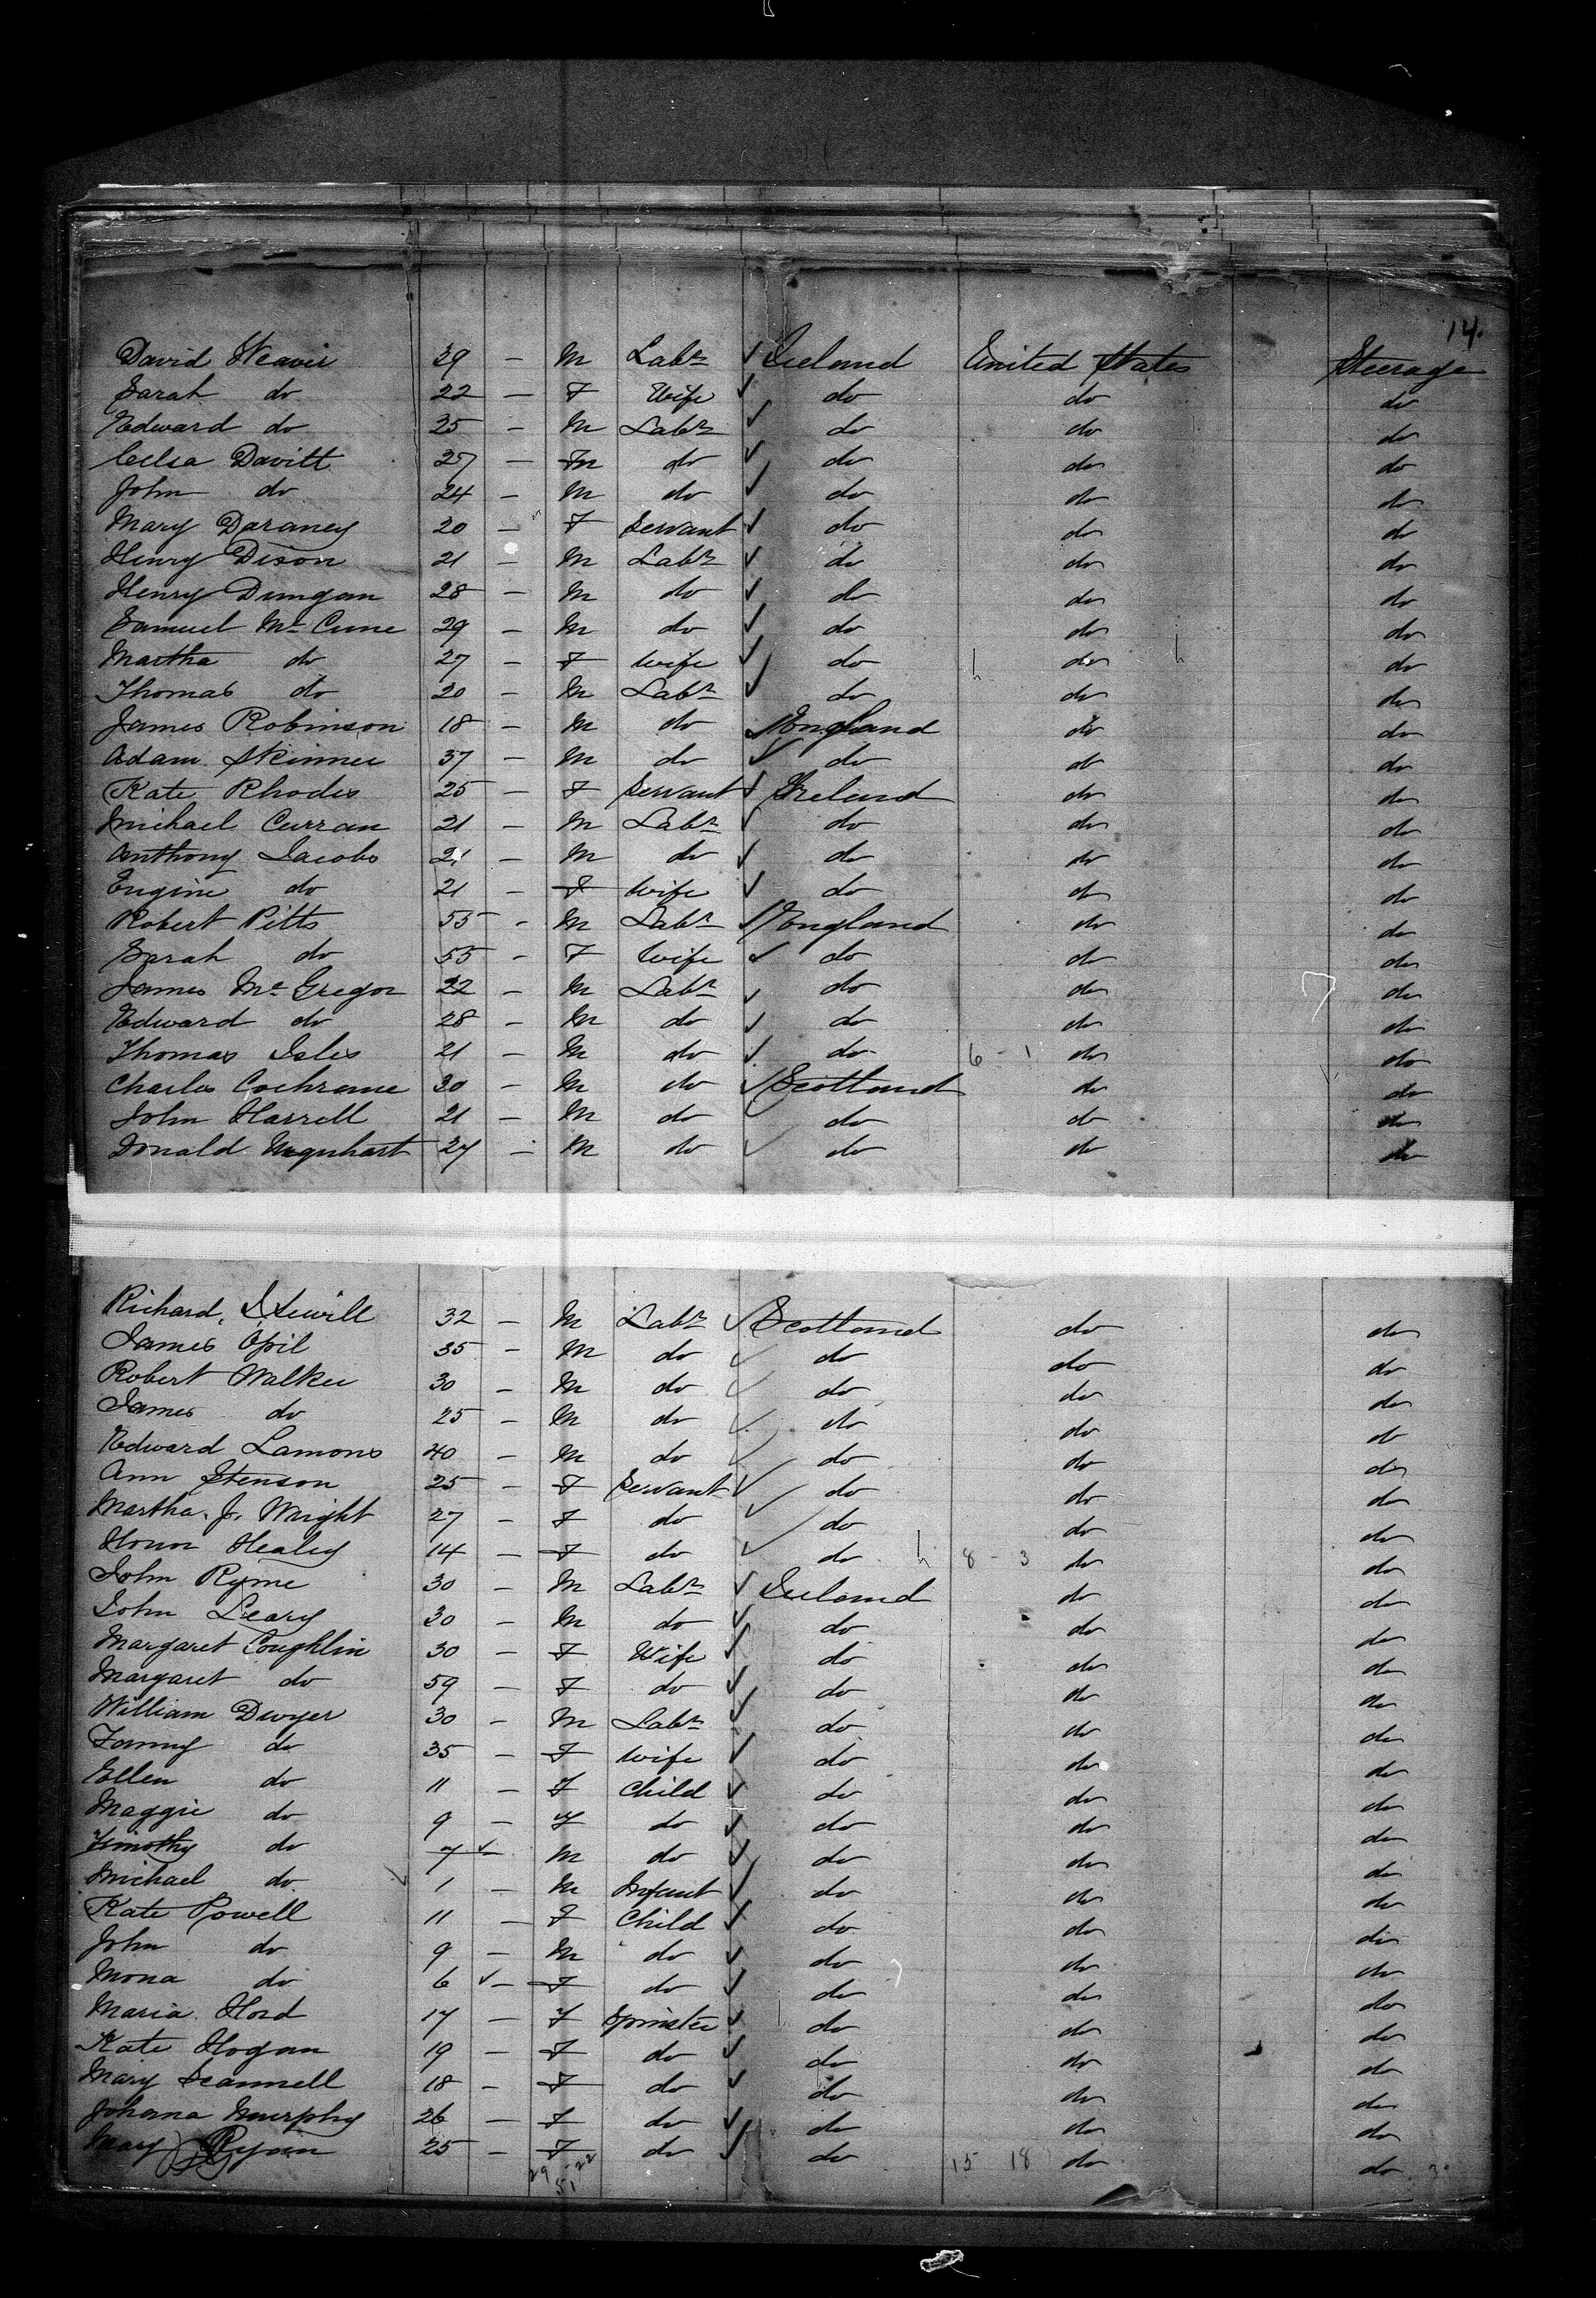 14.
David Weaver 39 – M Labr ✓ Ireland United States Steerage
Sarah do 22 – F Wife ✓ do do do
Edward do 25 – M Labr ✓ do do do
Celsa Davitt 27 – M do ✓ do do do
John do 24 – M do ✓ do do do
Mary Daraney 20 – F Servant ✓ do do do
Henry Dison 21 – M Labr ✓ do do do
Henry Dungan 28 – M do ✓ do do do
Samuel Mc Cune 29 – M do ✓ do do do
Martha do 27 – F Wife ✓ do do do
Thomas do 20 – M Labr ✓ do do do
James Robinson 18 – M do ✓ England do do
Adam Skinner 37 – M do ✓ do do do
Kate Rhodes 25 – F Servant ✓ Ireland do do
Michael Curran 21 – M Labr ✓ do do do
Anthony Jacobs 21 – M do ✓ do do do
Engine do 21 – F Wife ✓ do do do
Robert Pitts 55 – M Labr ✓ England do do
Sarah do 55 – F Wife ✓ do do do
James Mc Gregor 22 – M Labr ✓ do do do
Edward do 28 – M do ✓ do do do
Thomas Isles 21 – M do ✓ do 6 - 1 do do
Charles Cochrane 30 – M do ✓ Scotland do do
John Harrell 21 – M do ✓ do do do
Donald Urquhart 27 – M do ✓ do do do
Richard 32 – M Labr ✓ Scotland do do
James Opil 35 – M do ✓ do do do
Robert Walker 30 – M do ✓ do do do
James do 25 – M do ✓ do do do
Edward Lamons 40 – M do ✓ do do do
Ann Stenson 25 – F Servant ✓ do do do
Martha. J. Wright 27 – F do ✓ do do do
Honor Healey 14 – F do ✓ do 8 - 3 do do
John Ryme 30 – M Labr ✓ Ireland do do
John Leary 30 – M do ✓ do do do
Margaret Coughlin 30 – F Wife ✓ do do do
Margaret do 59 – F do ✓ do do do
William Dwyer 30 – M Labr ✓ do do do
Fanny do 35 – F Wife ✓ do do do
Ellen do 11 – F Child ✓ do do do
Maggie do 9 – F do ✓ do do do
Timothy do 7 ✓– M do ✓ do do do
Michael do ✓ 1 – M Infant ✓ do do do
Kate Powell 11 – F Child ✓ do do do
John do 9 – M do ✓ do do do
Mona do 6 ✓– F do ✓ do do do
Maria Hord 17 – F Spinster ✓ do do do
Kate Hogan 19 – F do ✓ do do do
Mary Scannell 18 – F do ✓ do do do
Johana Murphy 26 – F do ✓ do do do
Mary Ryan 25 – F do ✓ do 15 18 do do
29 - 22
51